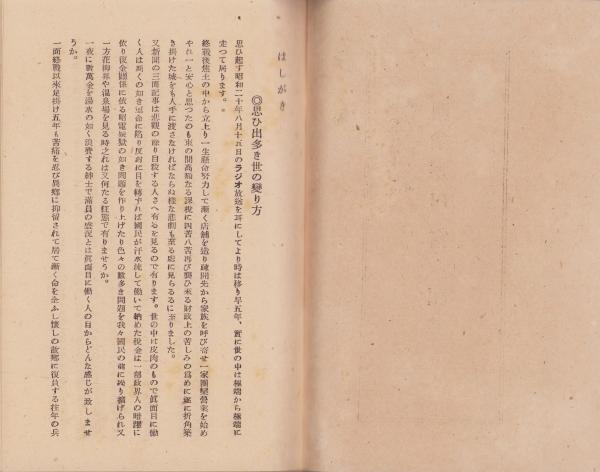 はしがき
◎思ひ出多き世の變り方
思ひ起す昭和二十年八月十五日のラジオ放送を耳にしてより時は移り早五年、實に世の中は極端から極端に
走つて居ります。
終戰後焦土の中から立上り一生懸命努力して漸く店舗を造り疎開先から家族を呼び寄せ一家團欒營業を始め
やれ一と安心と思つたのも束の間高額なる課税に四苦八苦再び襲ひ來る財政上の苦しみの爲めに遂に折角築
き掛けた城をも人手に渡さなければならぬ樣な悲劇も至る處に見らるるに至りました。
又新聞の三面記事は悲觀の餘り自殺する人さへ有るを見るので有ります。世の中は皮肉のもので眞面目に働
く人は漸くの如き運命に陷り反對に目を轉ずれば國民が汗水流して働いて納めた税金は一部政界人の暗躍に
依り復金關係に依る昭電疑獄の如き問題を作り上げたり色々の數多き問題を我々國民の前に繰り擴げられ又
一方花柳界や温泉場を見る時之れは又何たる狂態で有りませうか。
一夜に數萬金を湯水の如く浪費する紳士で滿員の盛況とは眞面目に働く人の目からどんな感じが致しませ
うか。
一面終戰以來足掛け五年も苦痛を忍び異郷に抑留されて居て漸く命を全ふし懷しの故郷に復員する往年の兵